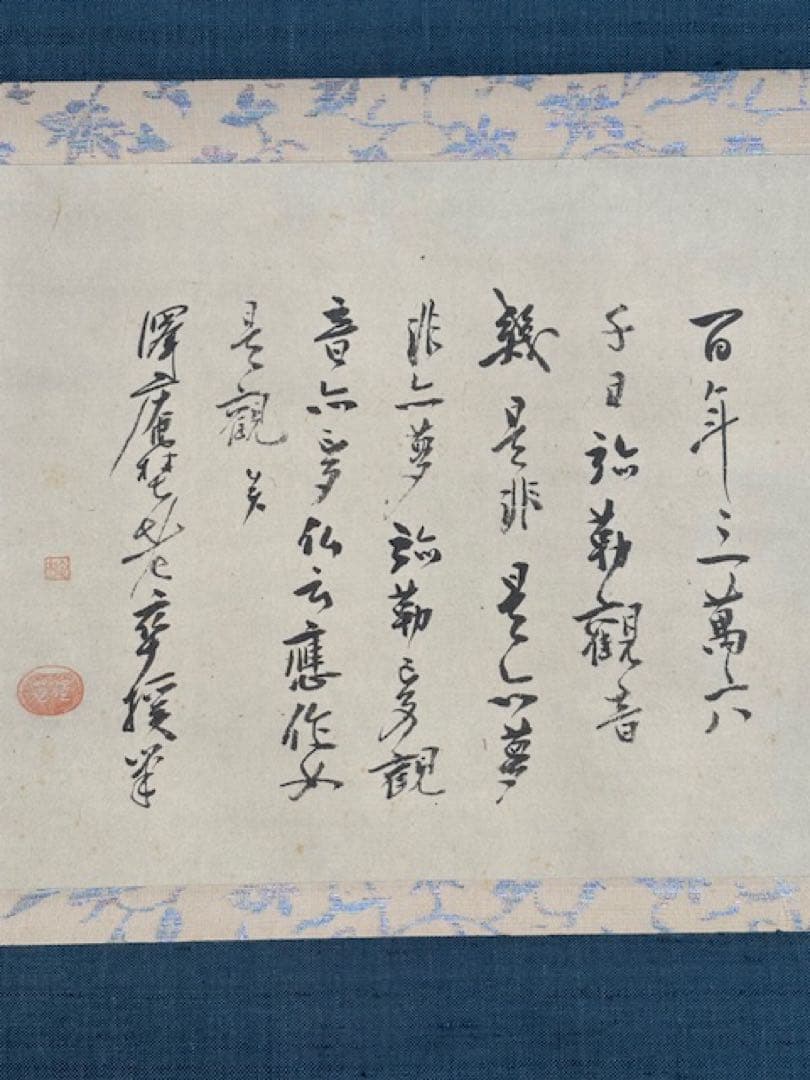 百年三萬六
千日弥勒觀音
幾是非是亦夢
非亦夢弥勒夢觀
音亦夢仏云應作如
是觀矣
澤庵野老卒援筆